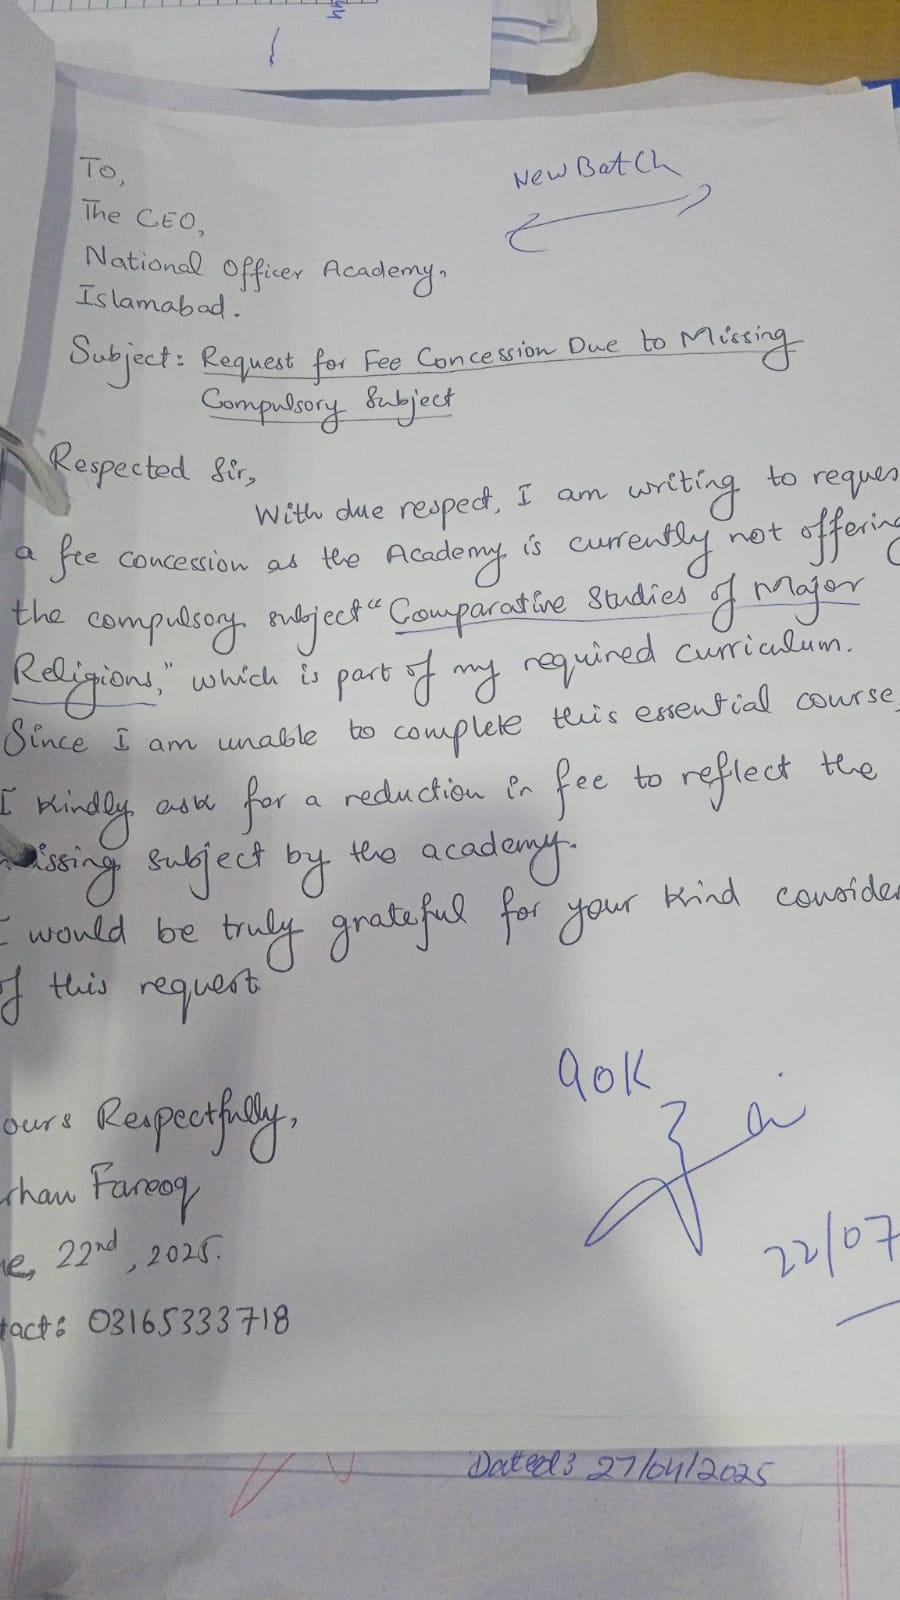 To,
The CEO,
National Officer Academy,
Islamabad.
New Batch
Subject: Request for Fee Concession Due to Missing
Compulsory Subject
Respected Sir,
With due respect, I am writing to reques
a fee concession as the Academy is currently not offering
the compulsory subject "Comparative Studies of Major
Religions," which is part of my required curriculum.
Since I am unable to complete this essential course,
I kindly ask for a reduction in fee to reflect the
issing subject by the academy.
I would be truly grateful for your kind consider
of this request
ours Respectfully,
rhan Farooq
ne, 22nd, 2025.
tact: 03165333718
90K
22/07
Dated: 27/04/2025